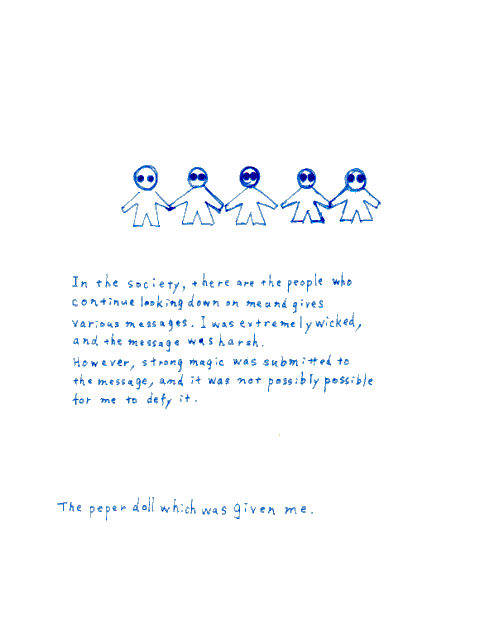 In the society, there are the people who
continue looking down on me and gives
various messages. I was extremely wicked,
and the message was harsh.
However, strong magic was submitted to
the message, and it was not possibly possible
for me to defy it.
The peper doll which was given me.